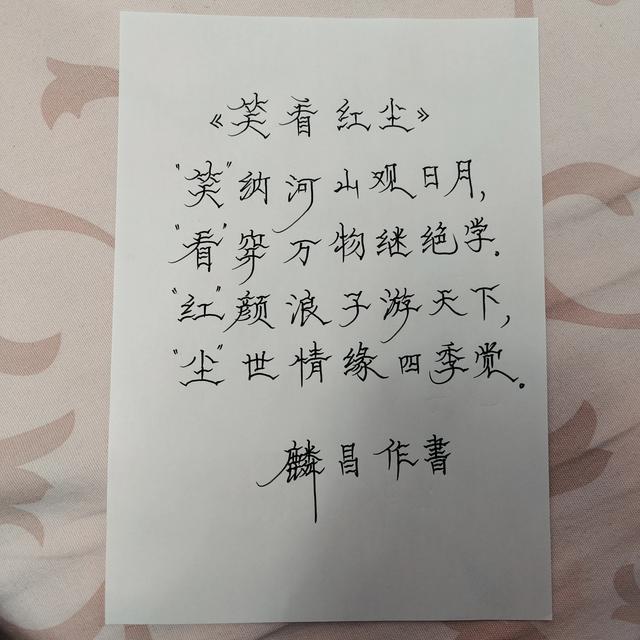 《笑看红尘》
"笑"纳河山观日月，
"看"穿万物继绝学。
"红"颜浪子游天下，
"尘"世情缘四季觉。
麟昌作書